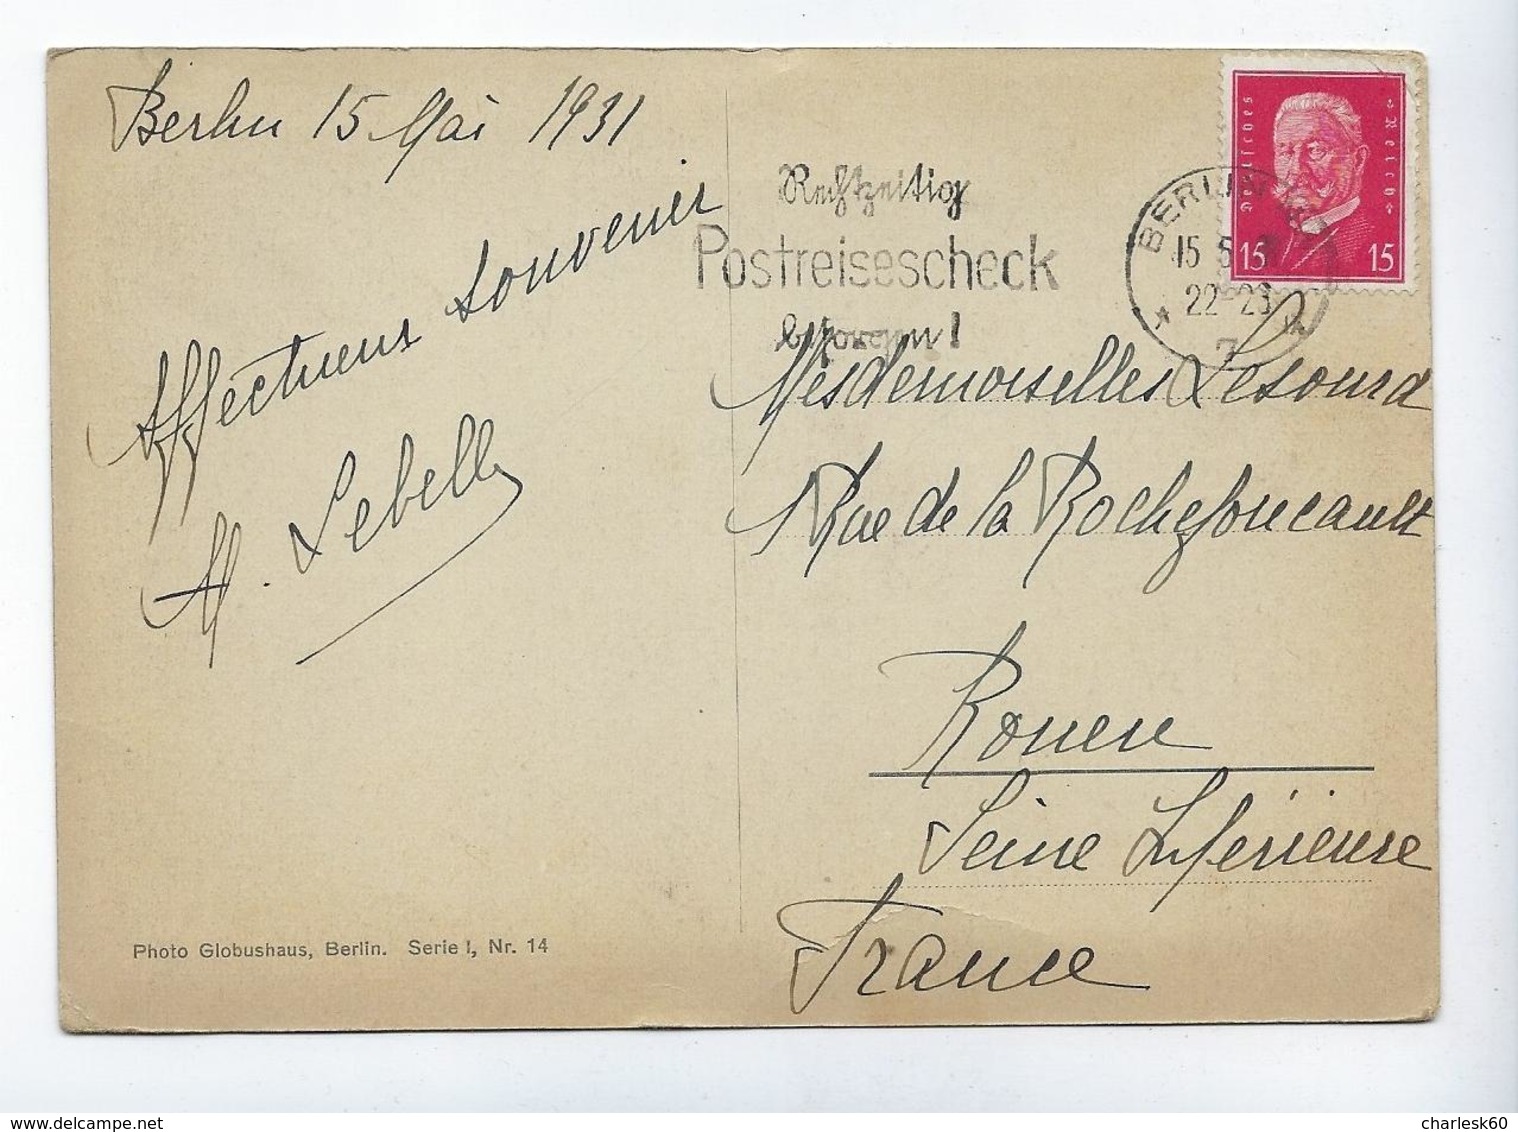 Berlin 15 Mai 1931
Affectueux souvenir
M. Lebelle
Photo Globushaus, Berlin. Serie I, Nr. 14
Rechtzeitig
Postreisescheck
besorgen!
BERLIN
15 5
22-23
7
Deutsches Reich
15 15
Mesdemoiselles Lesourd
Rue de la Rochefoucault
Rouen
Seine Inférieure
France
delcampe.net
charlesk60